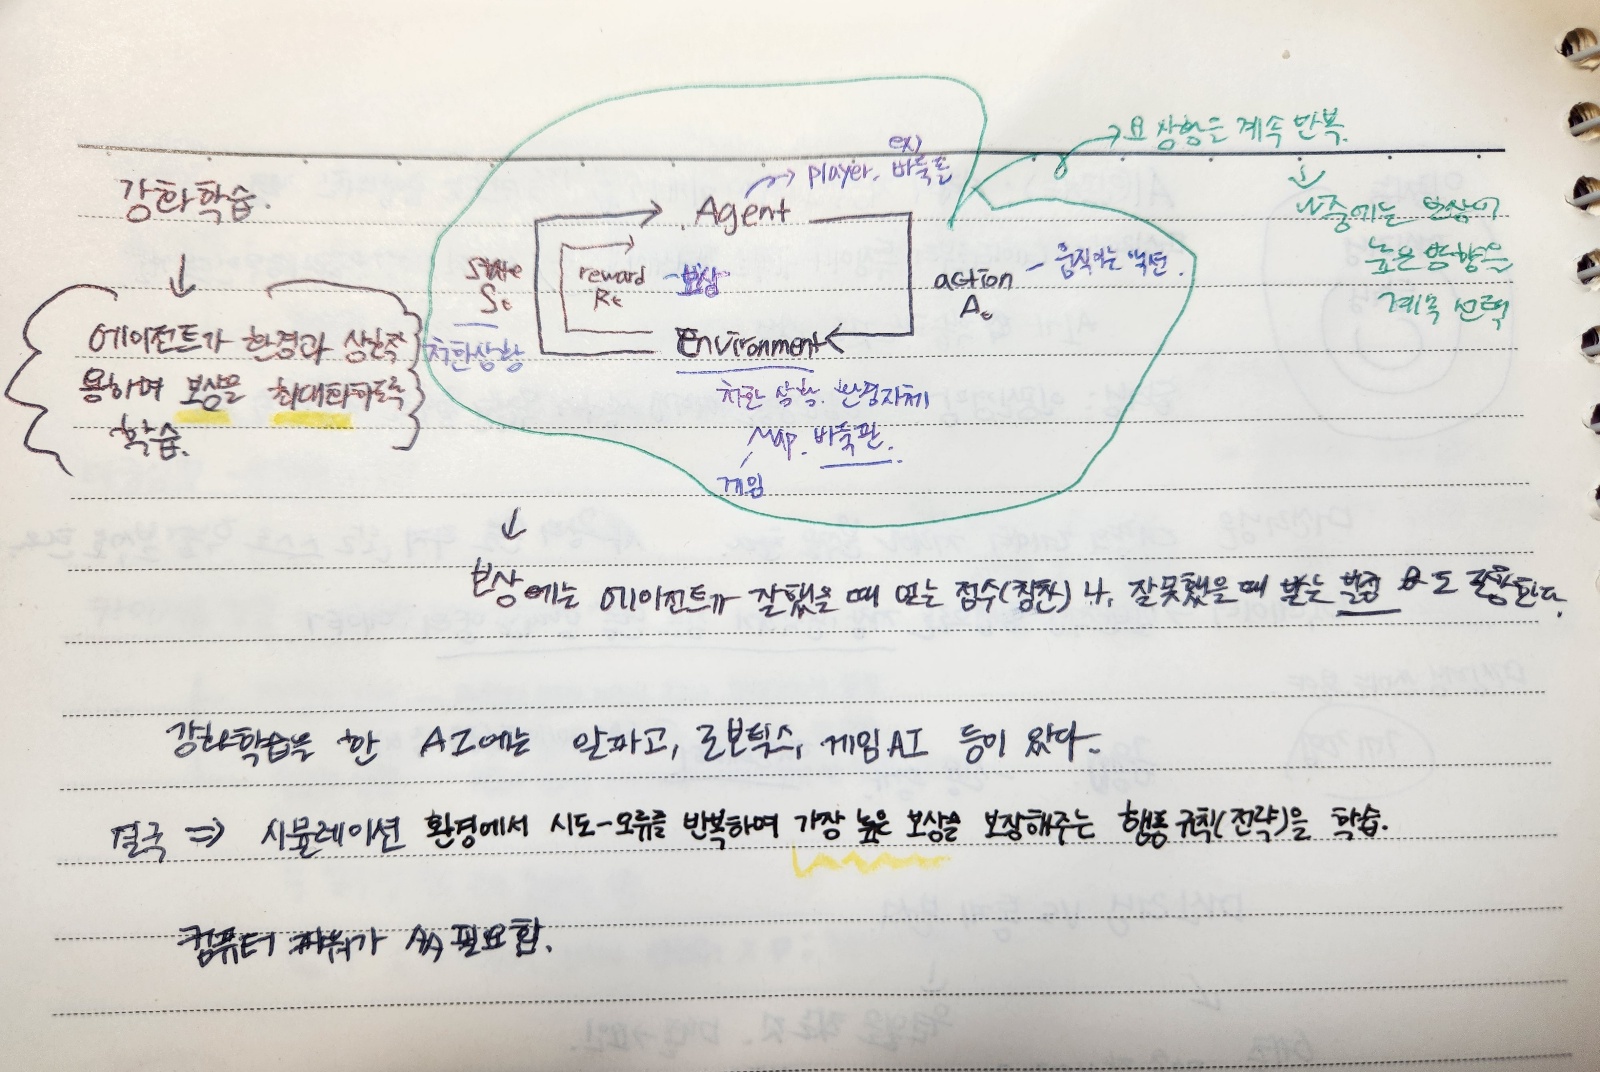 강화학습.
↓
에이전트가 환경과 상호작
용하며 보상을 최대화하도록
학습.
ex)
→ player, 바둑돌
Agent
state
St
reward
Rt
- 보상
action
At
- 움직이는 액션.
Environment
처한상황
처한 상황. 환경자체
MAP. 바둑판.
게임
→ 요 상황은 계속 반복.
↓
나중에는 보상이
높은 방향을
계속 선택
↓
보상에는 에이전트가 잘했을 때 받는 점수(칭찬) 나, 잘못했을 때 받는 벌점 도 포함된다.
강화학습을 한 AI에는 알파고, 로보틱스, 게임AI 등이 있다.
결국 ⇒ 시뮬레이션 환경에서 시도-오류를 반복하여 가장 높은 보상을 보장해주는 행동규칙(전략)을 학습.
컴퓨터 파워가 필요함.